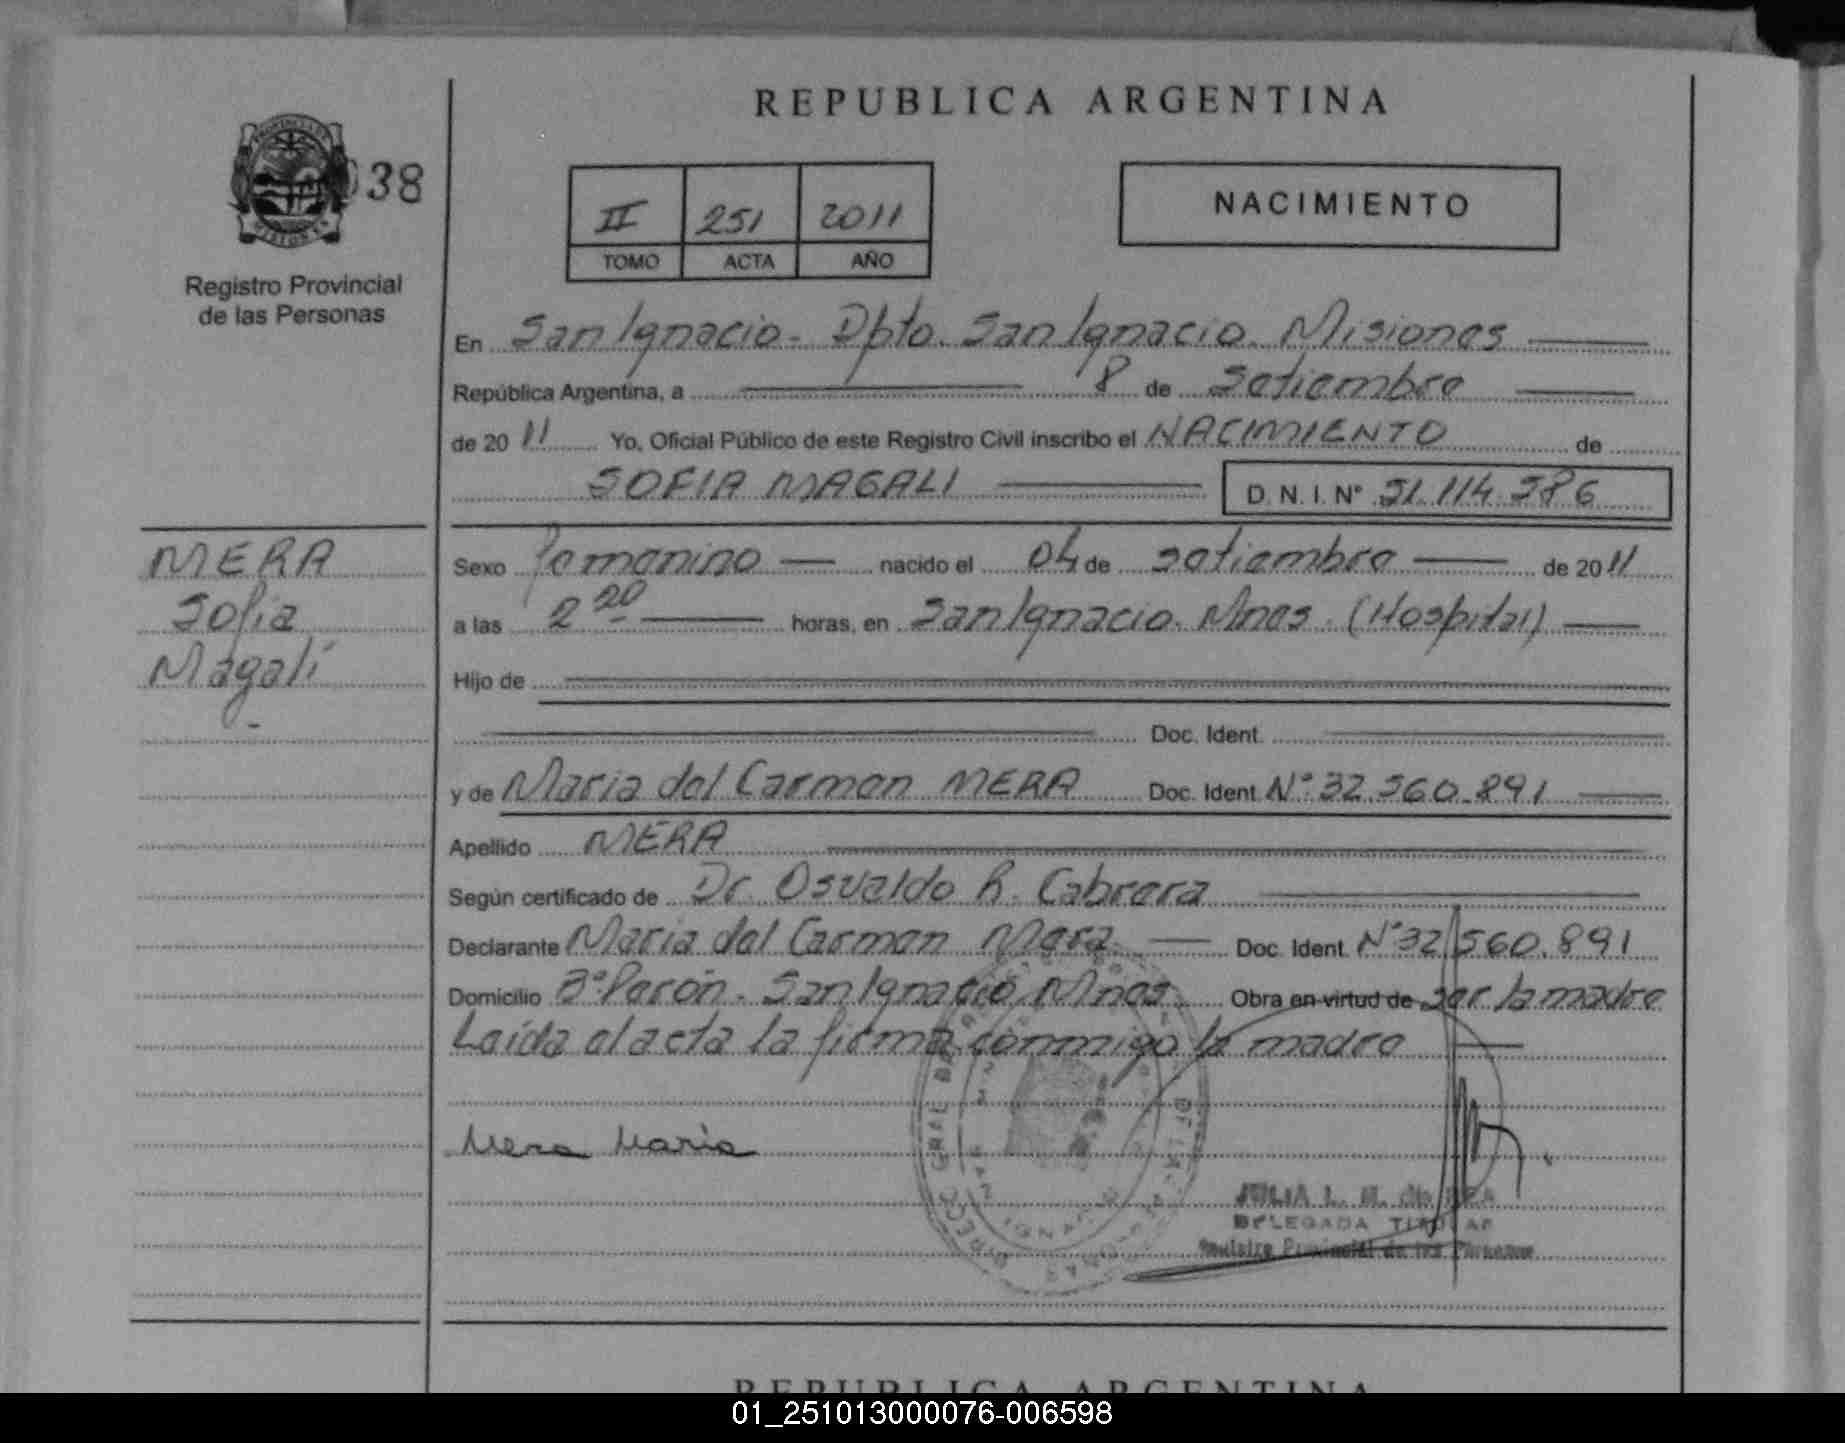 REPUBLICA ARGENTINA
038
Registro Provincial
de las Personas
II 251 2011
TOMO ACTA AÑO
NACIMIENTO
En San Ignacio - Dpto. San Ignacio. Misiones
República Argentina, a 8 de Setiembre
de 2011 Yo, Oficial Público de este Registro Civil inscribo el NACIMIENTO de
SOFIA MAGALI D.N.I. Nº 51.114.586
MERA
Sofia
Magalí
Sexo femenino nacido el 04 de setiembre de 2011
a las 2 20 horas, en San Ignacio. Mnes. (Hospital)
Hijo de
Doc. Ident.
y de Maria del Carmen MERA Doc. Ident. Nº 32.560.891
Apellido MERA
Según certificado de Dr. Osvaldo R. Cabrera
Declarante Maria del Carmen Mera Doc. Ident. Nº 32.560.891
Domicilio Bº Perón. San Ignacio Mnes. Obra en virtud de ser la madre
Leída el acta la firma conmigo la madre
Mera Maria
JULIA L.
DELEGADA TITULAR
Registro Provincial de las Personas
REPUBLICA ARGENTINA
01_251013000076-006598